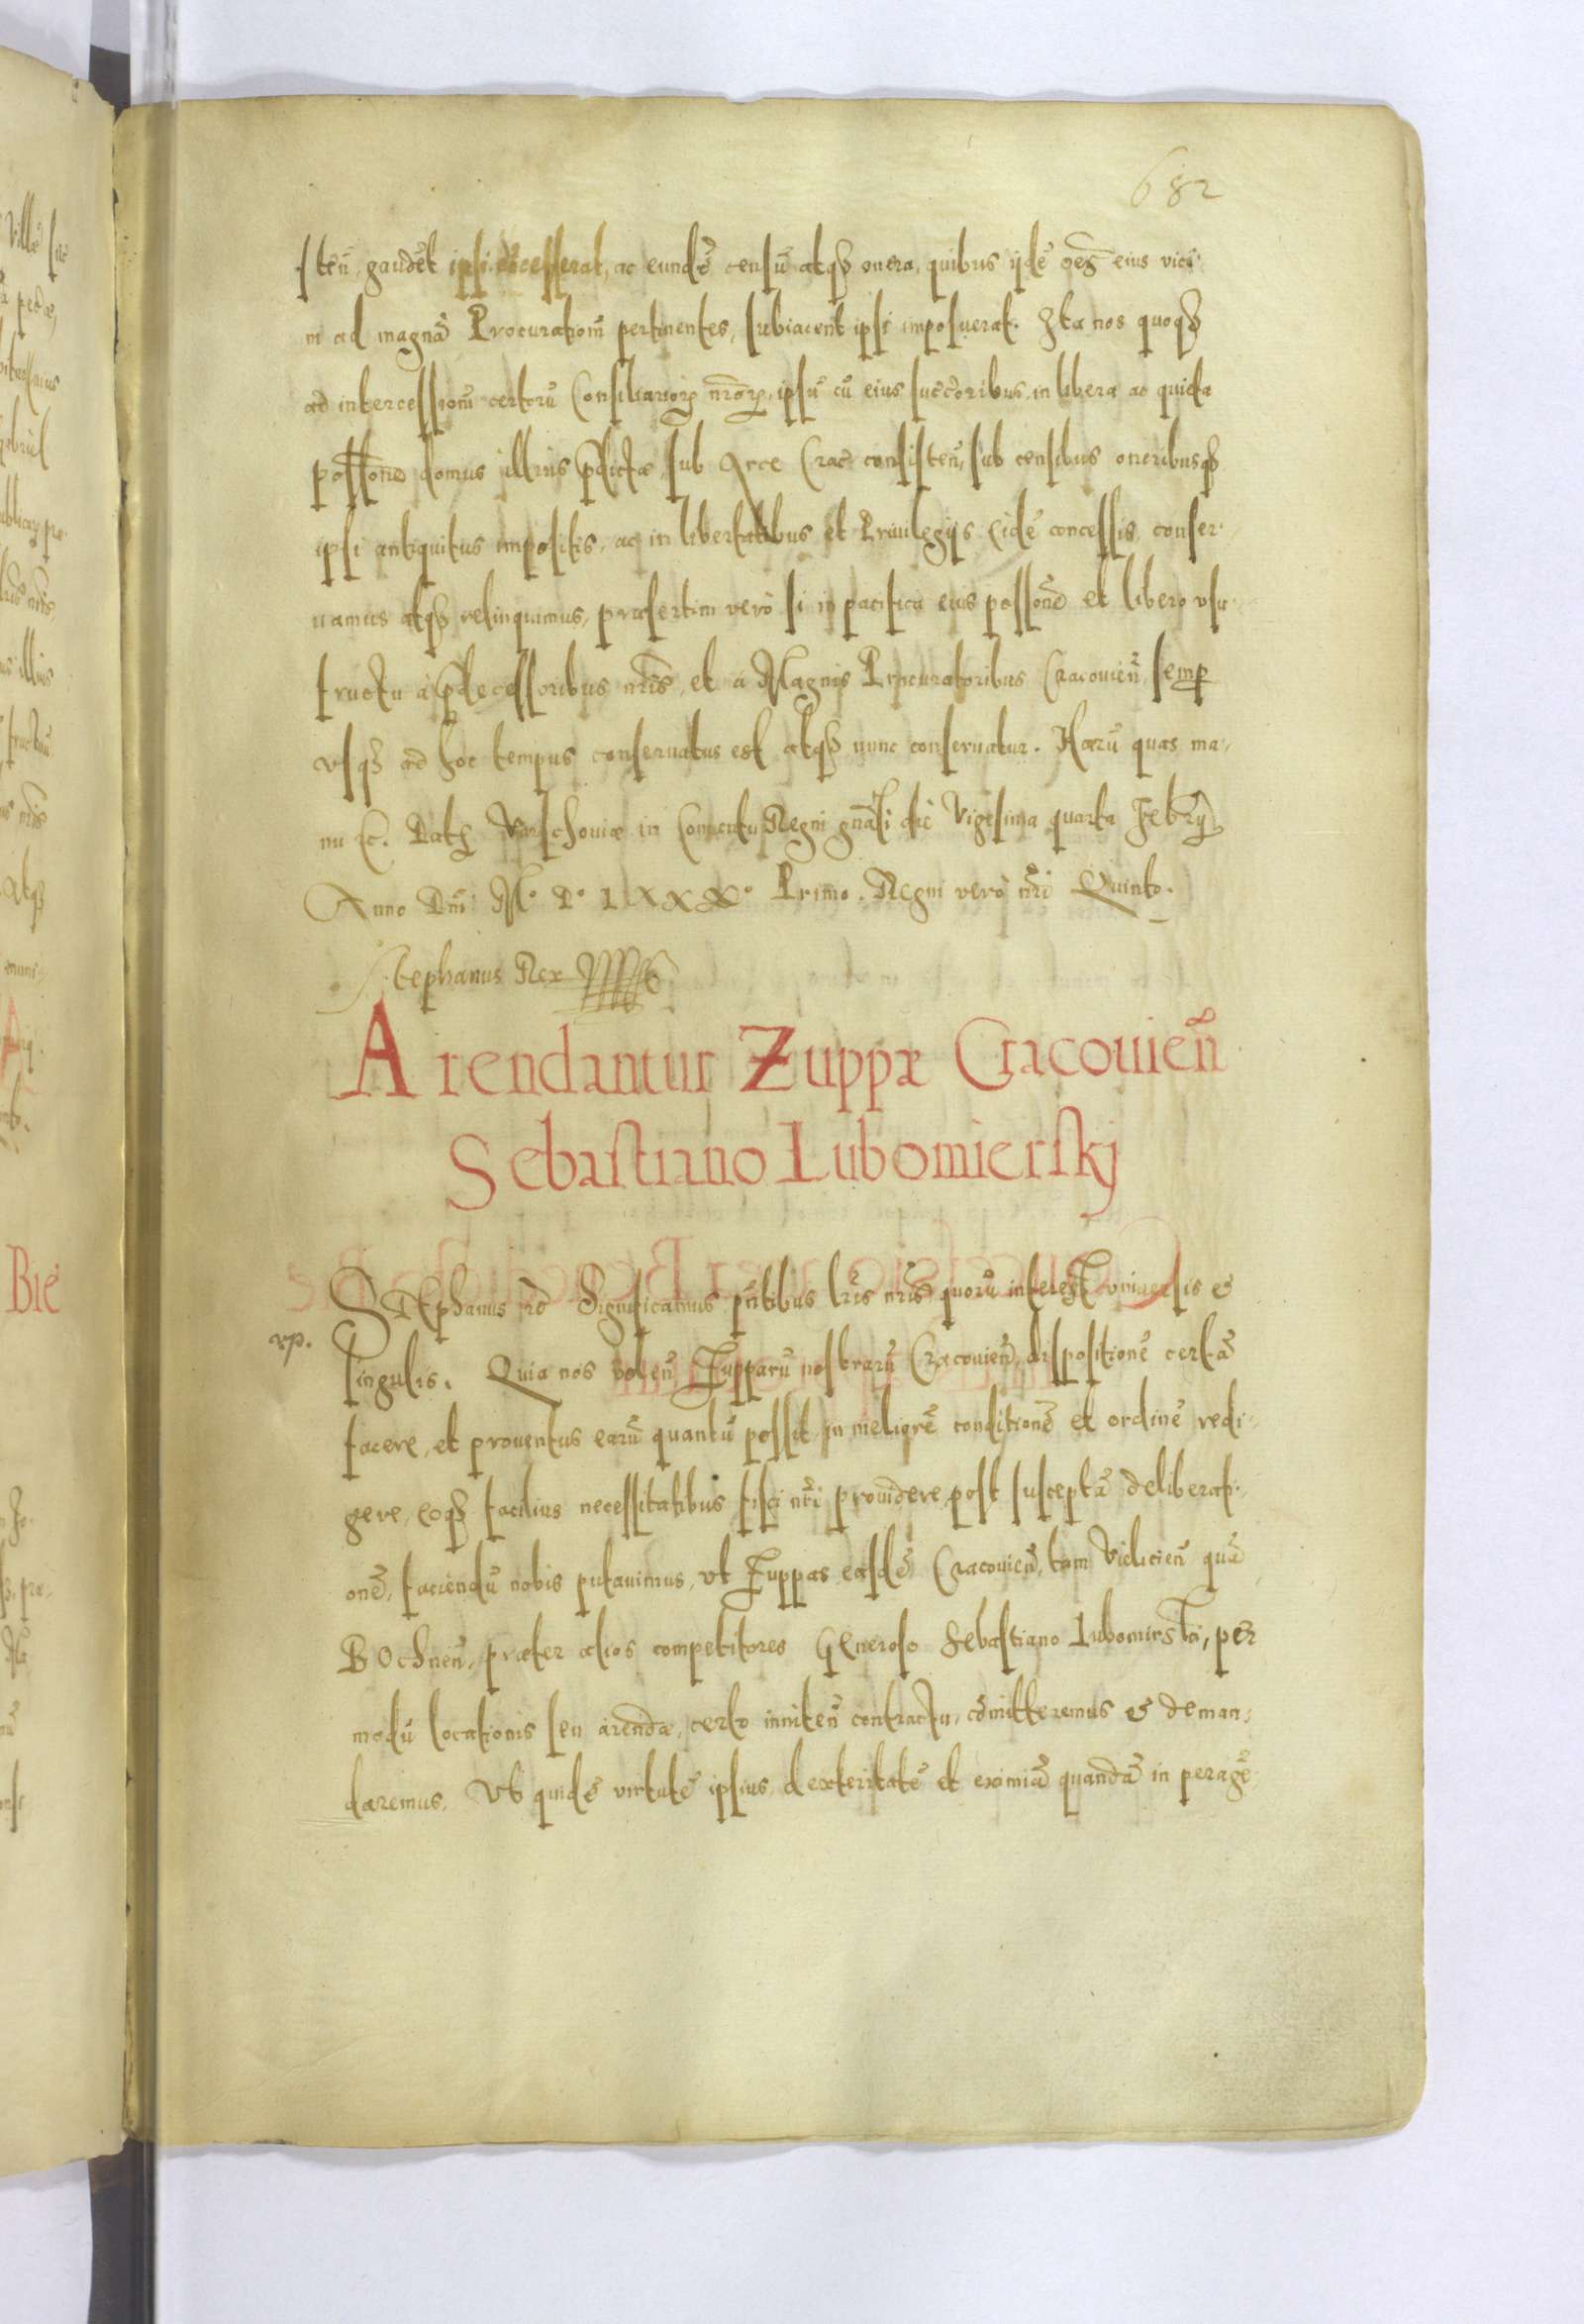 682
sten̄, gaudēt ipsi cōcesserat, ac eundē censū atq₃ onera, quibus ijdē oēs eius vici-
ni ad magnā Procurationē pertinentes, subiacent ipsi imposuerat. Ita nos quoq₃
ad intercessionē certorū Consiliarioꝝ nr̄oꝝ, ipsū cū eius succ̄oribus in libera ac quieta
possōne domus illius p̄dictæ sub Arce Crac̄ consisten̄, sub censibus oneribusq₃
ipsi antiquitus impositis, ac in libertatibus et Priuilegijs eidē concessis, conser-
uamus atq₃ relinquimus, præsertim verò si in pacifica eius possōne et libero vsu-
fructu à p̄decessoribus nr̄is, et à Magnis Procuratoribus Cracouien̄ semꝑ
vsq₃ ad hoc tempus conseruatus est atq₃ nunc conseruatur. Harū quas ma-
nu etc. Datꝫ Varschouiæ in Conuentu Regni gn̄ali die Vigesima quarta Febr̄ij
Anno Dn̄i M° D° LXXX° Primo. Regni verò nr̄i Quinto.
Stephanus Rex
Arendantur Zuppæ Cracouien̄
Sebastiano Lubomierskj
STEphanus etc̄ Significamus pn̄tibus lr̄is nr̄is quorū interest vniuersis &
rp.
singulis. Quia nos volen̄ Zupparū nostrarū Cracouien̄, dispositionē certā
facere, et prouentus earū quantū possit in meliorē conditionē et ordinē redi-
gere, eoq₃ facilius necessitatibus fisci nr̄i prouidere, post susceptā deliberati-
onē, faciendū nobis putauimus, vt Zuppas easdē Cracouien̄, tam Vielicien̄ quā
BOchnen̄, præter alios competitores GEneroso Sebastiano Lubomirski, per
modū locationis seu arendæ, certo inniten̄ contractu, cōmitteremus & deman-
daremus. Vt quidē virtutē ipsius, dexteritatē et eximiā quandā in peragē-